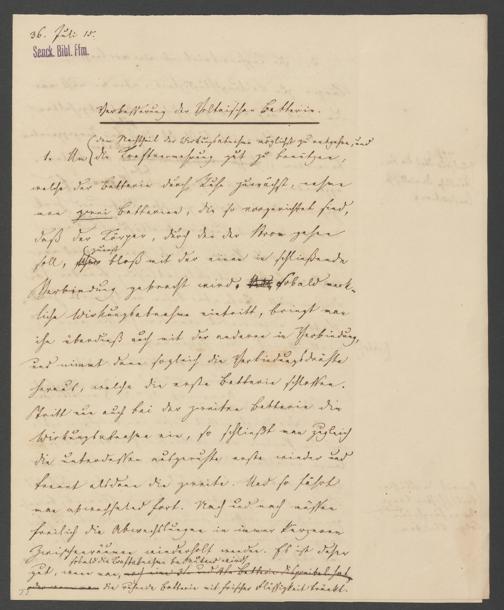 36. Juli 15.
Senck. Bibl. Ffm.
Verbesserung der Voltaischen Batterie.
den Nachtheil der Wirkungsabnahme möglichst zu entgehen, und
1. Um die Kraftvermehrung gut zu benützen,
welche der Batterie durch Ruhe zuwächst, nehme
man zwei Batterieen, die so vorgerichtet sind,
daß der Körper, durch den der Strom gehen
zuerst
soll, bloß mit der einen in schließende
Verbindung gebracht wird. Sobald merk-
liche Wirkungsabnahme eintritt, bringt man
ihn überdieß auch mit der anderen in Verbindung,
und nimmt dann sogleich die Verbindungsdrähte
heraus, welche die erste Batterie schlossen.
Tritt nun auch bei der zweiten Batterie die
Wirkungsabnahme ein, so schließt man zugleich
die unterdessen ausgeruhte erste wieder und
trennt alsdann die zweite. Und so fährt
man abwechselnd fort. Nach und nach müssen
freilich die Abwechslungen in immer kürzeren
Zwischenräumen wiederholt werden. Es ist daher
sobald die Kraftabnahme bedeutend wird
gut, wenn man,
die ruhende Batterie mit frischer Flüssigkeit tränkt.